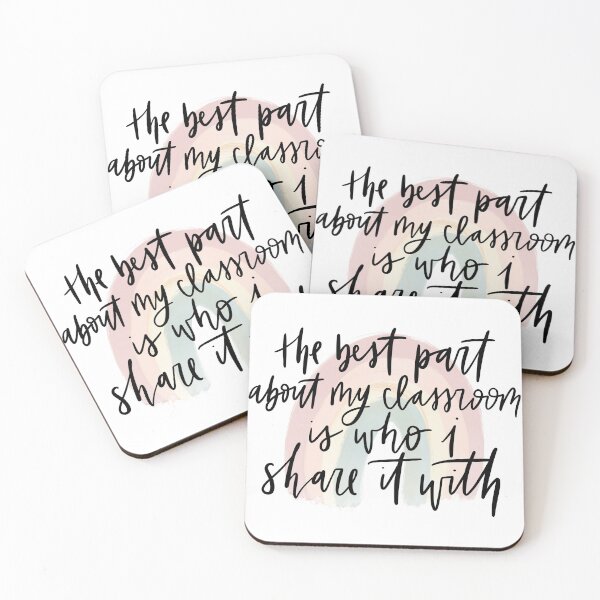 the best part
about my
i
the best part
about my classroom
is who i
share it with
the best part
about my classroom
is who i
share it
the best part
about my classroom
is who i
share it with